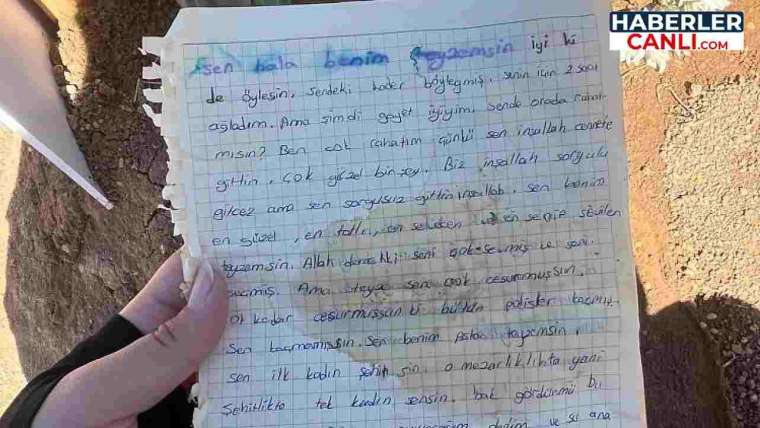 HABERLER
CANLI.COM
sen hala benim teyzemsin iyi ki
de öylesin. sendeki kader böyleymiş, senin için 2 saat
ağladım. Ama şimdi gayet iyiyim. Sende orada rahat
mısın? Ben çok rahatım çünkü sen inşallah cennete
gittin. Çok güzel bir şey. Biz inşallah sorgulu
gitcez ama sen sorgusuz gittin inşallah. sen benim
en güzel, en tatlı, en en sevilen
teyzemsin. Allah demekki seni çok sevmiş ve seni
seçmiş. Ama teyze sen çok cesurmuşsun.
O kadar cesurmuşsun ki bütün polisler kaçmış
sen kaçmamışsın. Sen benim teyzemsin.
sen ilk kadın şehitsin. O mezarlıklıkta yani
Şehitlikte tek kadın sensin. bak gördünmü bu
dedim ve ana